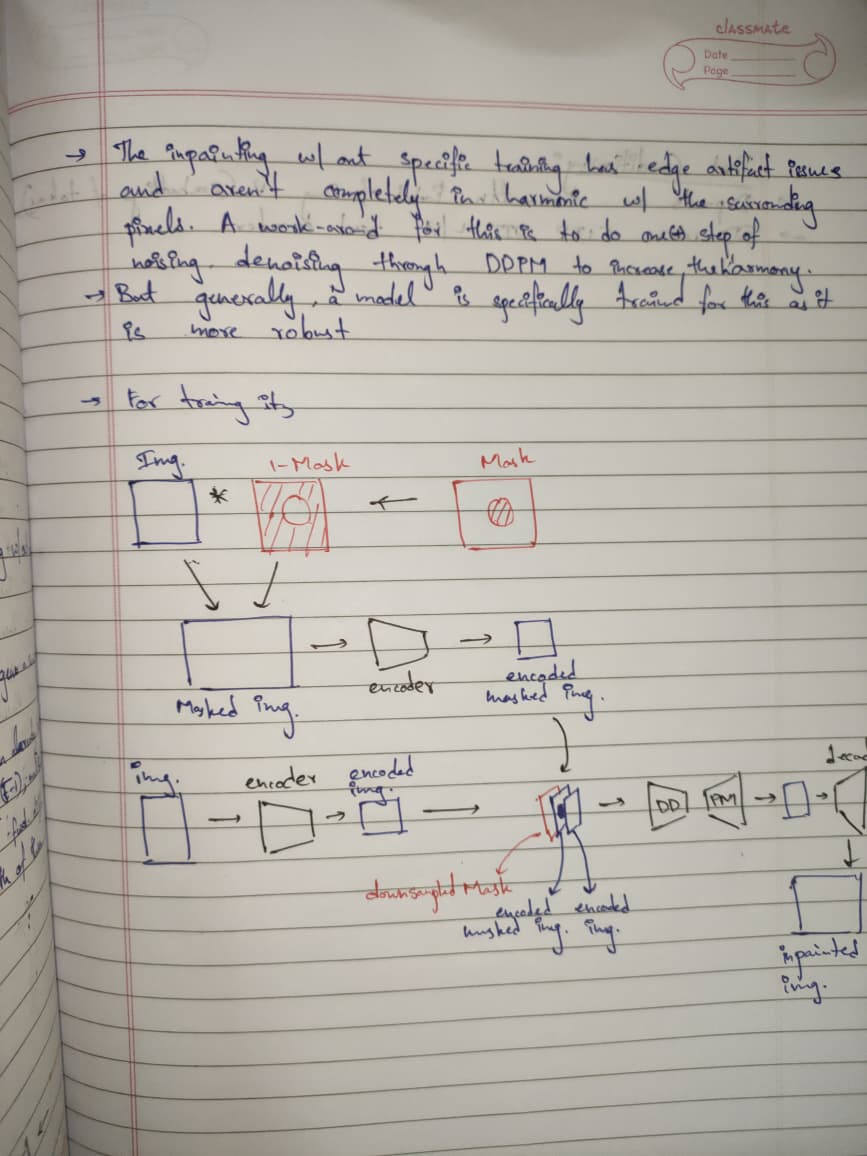 classmate
Date
Page
→ The inpainting w/ out specific training has edge artifact issues
and aren't completely in harmonic w/ the surronding
pixels. A work-aroud for this is to do one(+) step of
noising, denoising through DDPM to increase, the harmony.
→ But generally, a model is specifically traind for this as it
is more robust
→ For traing it,
Img. 1-Mask Mask
*
Masked img. encoder encoded
masked img.
img. encoder encoded
img.
DD PM
downsampled Mask
encoded encoded
masked img. img.
inpainted
img.